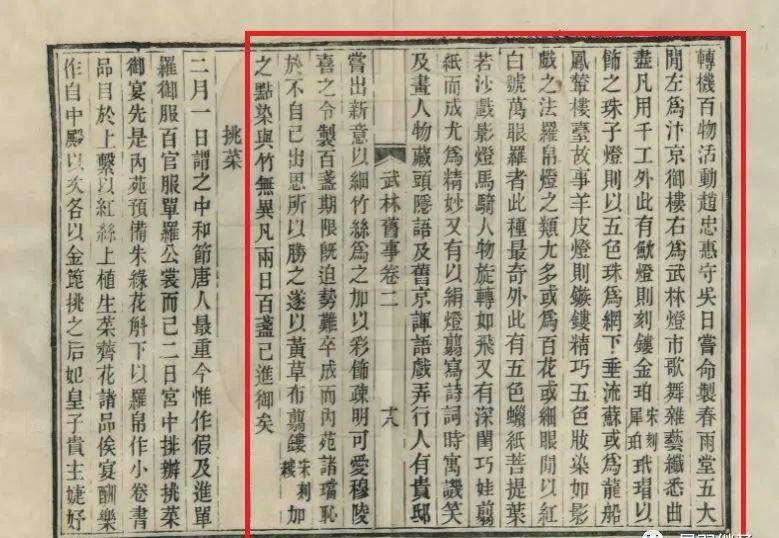 轉機百物活動趙忠惠守吳日嘗命製春雨堂五大
閒左爲汴京御樓右爲武林燈市歌舞雜藝纖悉曲
盡凡用千工外此有魫燈則刻鏤金珀宋刻犀珀玳瑁以
飾之珠子燈則以五色珠爲網下垂流蘇或爲龍船
鳳輦樓臺故事羊皮燈則鏃鏤精巧五色妝染如影
戲之法羅帛燈之類尤多或爲百花或細眼閒以紅
白號萬眼羅者此種最奇外此有五色蠟紙菩提葉
若沙戲影燈馬騎人物旋轉如飛又有深閨巧娃翦
紙而成尤爲精妙又有以絹燈翦寫詩詞時寓譏笑
及畫人物藏頭隱語及舊京諢語戲弄行人有貴邸
武林舊事卷二 十八
嘗出新意以細竹絲爲之加以彩飾疎明可愛穆陵
喜之令製百盞期限旣迫勢難卒成而內苑諸璫恥
於不自己出思所以勝之遂以黃草布翦鏤宋刻加
之點染與竹無異凡兩日百盞已進御矣
挑菜
二月一日謂之中和節唐人最重今惟作假及進單
羅御服百官服單羅公裳而已二日宮中排辦挑菜
御宴先是內苑預備朱綠花斛下以羅帛作小卷書
品目於上繫以紅絲上植生菜薺花諸品俟宴酬樂
作自中殿以次各以金篦挑之后妃皇子貴主婕妤